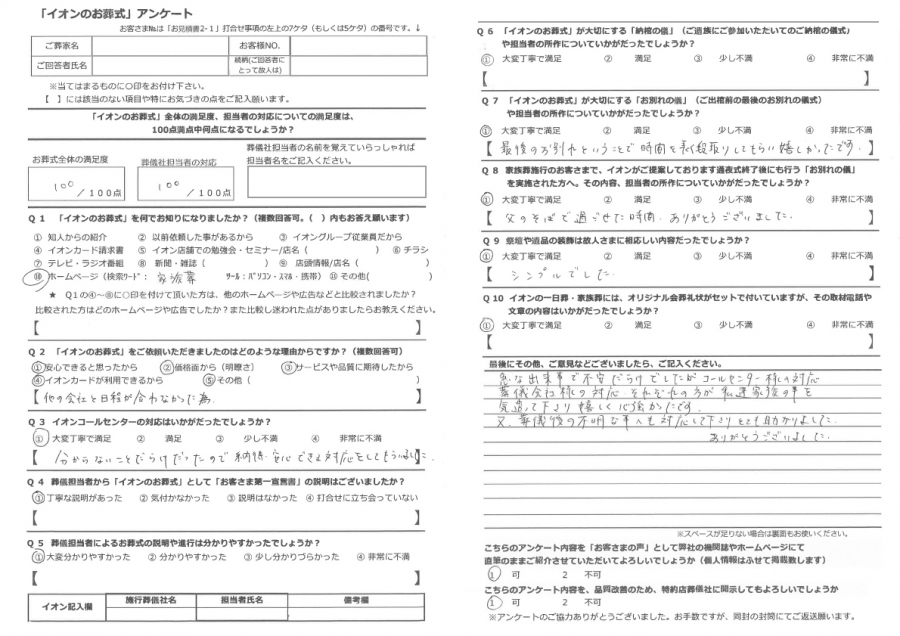 「イオンのお葬式」アンケート
お客さま№は「お見積書2-1」打合せ事項の左上の7ケタ(もしくは5ケタ)の番号です。↓
ご葬家名 お客様NO.
ご回答者氏名 続柄(ご回答者に
とって故人は)
※当てはまるものに○印をお付け下さい。
【 】には該当のない項目や特にお気づきの点をご記入願います。
「イオンのお葬式」全体の満足度、担当者の対応についての満足度は、
100点満点中何点になるでしょうか?
お葬式全体の満足度
100 /100点
葬儀社担当者の対応
100 /100点
葬儀社担当者の名前を覚えていらっしゃれば
担当者名をご記入ください。
Q1 「イオンのお葬式」を何でお知りになりましたか?(複数回答可。( )内もお答え願います)
① 知人からの紹介 ② 以前依頼した事があるから ③ イオングループ従業員だから
④ イオンカード請求書 ⑤ イオン店舗での勉強会・セミナー/店名( ) ⑥ チラシ
⑦ テレビ・ラジオ番組 ⑧ 新聞・雑誌( ) ⑨ 店頭情報/店名( )
⑩ ホームページ(検索ワード: 家族葬 ツール:パソコン・スマホ・携帯) ⑪ その他( )
★ Q1の④~⑩に○印を付けて頂いた方は、他のホームページや広告などと比較されましたか?
比較された方はどのホームページや広告でしたか?また比較し迷われた点がありましたらお教えください。
【 】
Q2 「イオンのお葬式」をご依頼いただきましたのはどのような理由からですか?(複数回答可)
①安心できると思ったから ②価格面から(明瞭さ) ③サービスや品質に期待したから
④イオンカードが利用できるから ⑤その他( )
【 他の会社と日程が合わなかった為. 】
Q3 イオンコールセンターの対応はいかがだったでしょうか?
① 大変丁寧で満足 ② 満足 ③ 少し不満 ④ 非常に不満
【 分からないことだらけだったので納得.安心できる対応をしてもらいました. 】
Q4 葬儀担当者から「イオンのお葬式」として「お客さま第一宣言書」の説明はございましたか?
①丁寧な説明があった ② 気付かなかった ③ 説明はなかった ④ 打合せに立ち会っていない
【 】
Q5 葬儀担当者によるお葬式の説明や進行は分かりやすかったでしょうか?
①大変分かりやすかった ② 分かりやすかった ③ 少し分かりづらかった ④ 非常に不満
【 】
イオン記入欄 施行葬儀社名 担当者氏名 備考欄
Q6 「イオンのお葬式」が大切にする「納棺の儀」(ご遺族にご参加いただいてのご納棺の儀式)
や担当者の所作についていかがだったでしょうか?
① 大変丁寧で満足 ② 満足 ③ 少し不満 ④ 非常に不満
【 】
Q7 「イオンのお葬式」が大切にする「お別れの儀」(ご出棺前の最後のお別れの儀式)
や担当者の所作についていかがだったでしょうか?
① 大変丁寧で満足 ② 満足 ③ 少し不満 ④ 非常に不満
【 最後のお別れということで時間を長く段取りしてもらい嬉しかったです. 】
Q8 家族葬施行のお客さまで、イオンがご提案しております通夜式終了後にも行う「お別れの儀」
を実施された方へ。その内容、担当者の所作についていかがだったでしょうか?
① 大変丁寧で満足 ② 満足 ③ 少し不満 ④ 非常に不満
【 父のそばで過ごせた時間.ありがとうございました. 】
Q9 祭壇や遺品の装飾は故人さまに相応しい内容だったでしょうか?
① 大変丁寧で満足 ② 満足 ③ 少し不満 ④ 非常に不満
【 シンプルでした. 】
Q10 イオンの一日葬・家族葬には、オリジナル会葬礼状がセットで付いていますが、その取材電話や
文章の内容はいかがだったでしょうか?
① 大変丁寧で満足 ② 満足 ③ 少し不満 ④ 非常に不満
【 】
最後にその他、ご意見などございましたら、ご記入ください。
急な出来事で不安だらけでしたがコールセンター様の対応
葬儀会社様の対応 それぞれの方が私達家族の事を
気遣って下さり嬉しく心強かったです.
又、葬儀後の不明な事へも対応して下さりとても助かりました.
ありがとうございました.
※スペースが足りない場合は裏面もお使いください。
こちらのアンケート内容を「お客さまの声」として弊社の機関誌やホームページにて
直筆のままご紹介させていただいてよろしいでしょうか(個人情報はふせて掲載致します)
1 可 2 不可
こちらのアンケート内容を、品質改善のため、特約店葬儀社に開示してもよろしいでしょうか
1 可 2 不可
※アンケートのご協力ありがとうございました。お手数ですが、同封の封筒にてご返送願います。